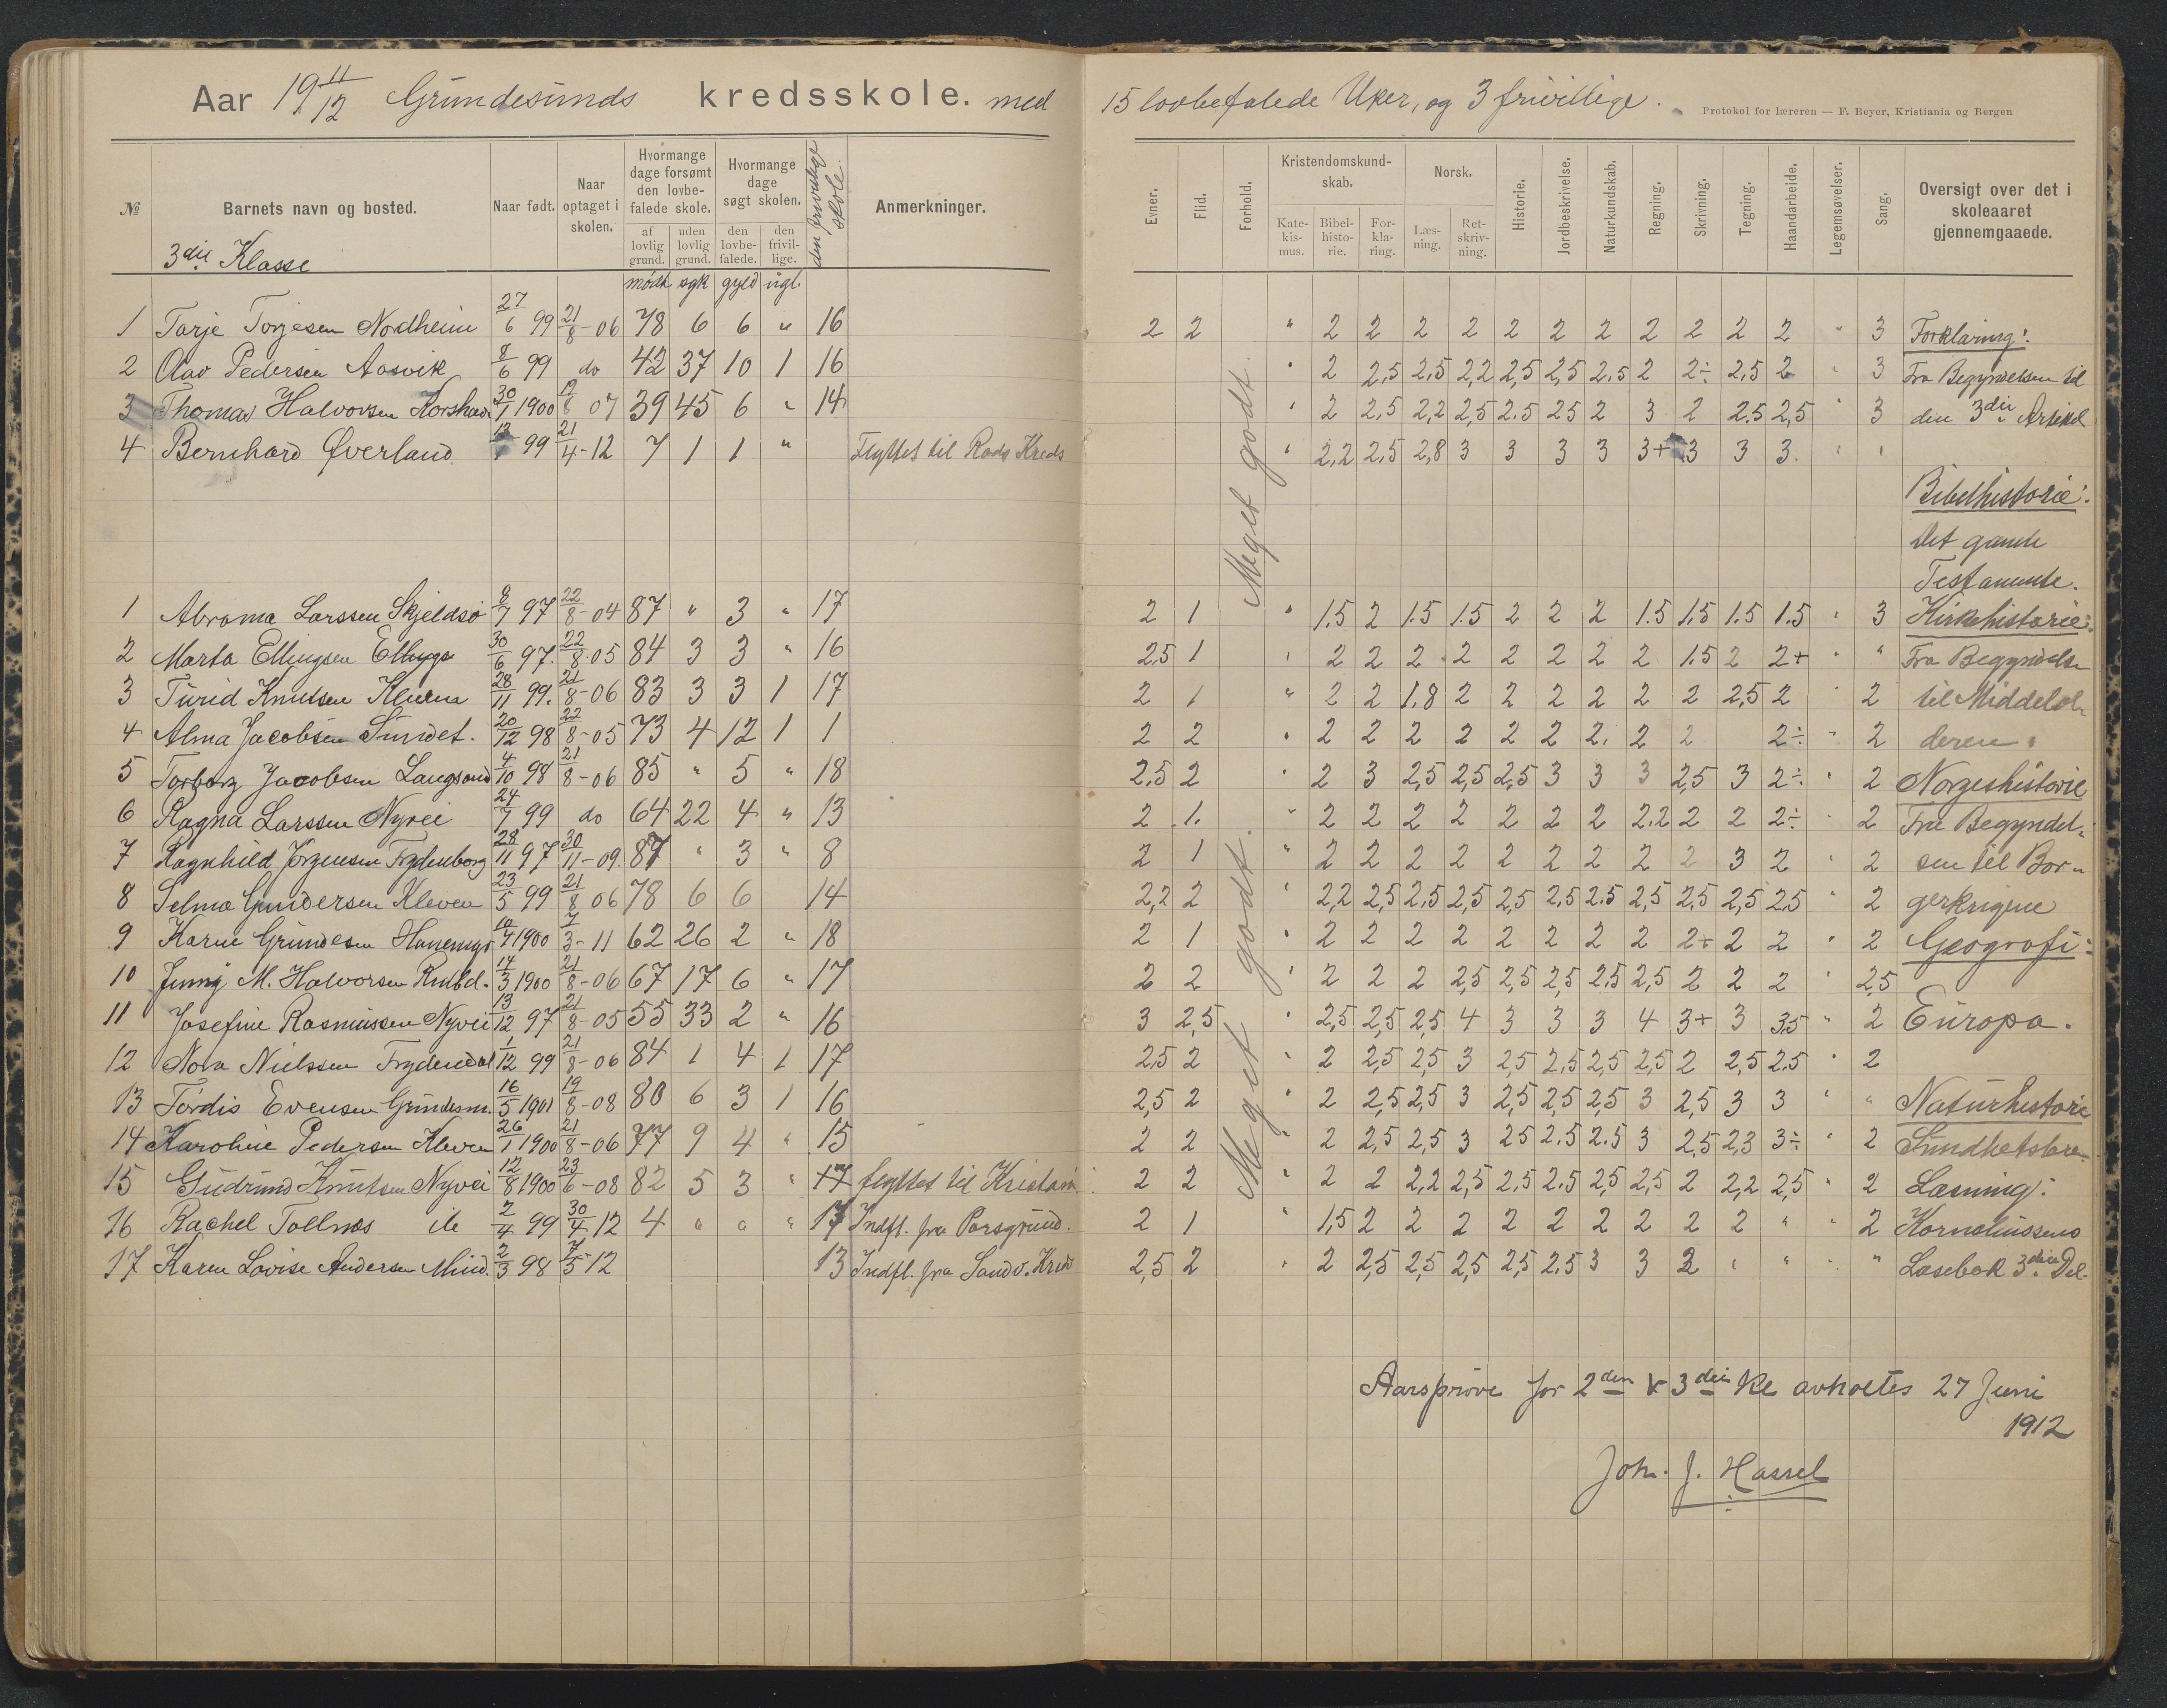 Aar 19 11/12 Grundesunds kredsskole. med 15 lovbefalede Uker, og 3 frivillige.
Protokol for læreren — F. Beyer, Kristiania og Bergen
№ Barnets navn og bosted. Naar født. Naar optaget i skolen. Hvormange dage forsømt den lovbefalede skole. af lovlig grund. uden lovlig grund. Hvormange dage søgt skolen. den lovbefalede. den frivillige. den frivillige skole. Anmerkninger.
Evner. Flid. Forhold. Kristendomskundskab. Katekismus. Bibelhistorie. Forklaring. Norsk. Læsning. Retskrivning. Historie. Jordbeskrivelse. Naturkundskab. Regning. Skrivning. Tegning. Haandarbeide. Legemsøvelser. Sang. Oversigt over det i skoleaaret gjennemgaaede.
3die Klasse
mødt syk gyld ugl.
1 Tarje Torjesen Nordheim 27/6 99 21/8-06 78 6 6 " 16
2 Olav Pedersen Aasvik 8/6 99 do 42 37 10 1 16
3 Thomas Halvorsen Korshavn 30/1 1900 19/8 07 39 45 6 " 14
4 Bernhard Øverland 99 21/4-12 7 1 1 " Flyttet til Rods Kreds
1 Abrama Larssen Skjeldsø 8/7 97 22/8-04 87 " 3 " 17
2 Marta Ellingsen 30/6 97. 22/8.05 84 3 3 " 16
3 Turid Knutsen 28/11 99. 21/8-06 83 3 3 1 17
4 Alma Jacobsen Sundet. 20/12 98 22/8-05 73 4 12 1 1
5 Torborg Jacobsen Langsand 4/10 98 21/8-06 85 " 5 " 18
6 Ragna Larssen Nyvei 24/7 99 do 64 22 4 " 13
7 Ragnhild Jørgensen Frydenborg 28/11 97 30/11-09. 87 " 3 " 8
8 Selma Gundersen Kleven 23/5 99 21/8 06 78 6 6 14
9 Karne Grundesen 1900 7/3-11 62 26 2 " 18
10 Jenny M. Halvorsen 14/3 1900 21/8-06 67 17 6 " 17
11 Josefine Rasmussen Nyvei 13/12 97 21/8-05 55 33 2 " 16
12 Nora Nielssen Frydendal 1/12 99 21/8-06 84 1 4 1 17
13 Tordis Evensen Grundesm. 16/5 1901 19/8-08 80 6 3 1 16
14 Karoline Pedersen Kleven 26/1 1900 21/8-06 77 9 4 " 15
15 Gudrund Knutsen Nyvei 12/8 1900 23/6-08 82 5 3 " 17 flyttet til Kristania
16 Rachel Tollnes 2/4 99 30/4 12 4 " " " 17 Indfl. fra Porsgrund.
17 Karen Lovise Andersen 2/3 98 7/5 12 13 Indfl. fra Sandv. Kreds
Meget godt.
Meget godt.
2 2 " 2 2 2 2 2 2 2 2 2 2 2 " 3
" 2 2,5 2,5 2,2 2,5 2,5 2.5 2 2÷ 2,5 2 " 3
" 2 2,5 2,2 2,5 2.5 25 2 3 2 2.5 2,5 3
" 2,2 2,5 2,8 3 3 3 3 3+ 3 3 3. " "
2 1 " 1.5 2 1.5 1.5 2 2 2 1.5 1.5 1.5 1.5 " 3
2,5 1 " 2 2 2 2 2 2 2 2 1.5 2 2+ " "
2 1 " 2 2 1.8 2 2 2 2 2 2 2,5 2 " 2
2 2 " 2 2 2 2 2 2 2. 2 2 2÷ " 2
2.5 2 " 2 3 2,5 2,5 2,5 3 3 3 2,5 3 2÷ " 2
2 1. " 2 2 2 2 2 2 2 2.2 2 2 2÷ " 2
2 1 " 2 2 2 2 2 2 2 2 2 3 2 " 2
2,2 2 " 2,2 2,5 2,5 2,5 2,5 2,5 2.5 2,5 2,5 2,5 2.5 " 2
2 1 " 2 2 2 2 2 2 2 2 2+ 2 2 " 2
2 2 " 2 2 2 2,5 2,5 2,5 2.5 2,5 2 2 2 " 2,5
3 2,5 " 2,5 2,5 2,5 4 3 3 3 4 3+ 3 3,5 " 2
2,5 2 " 2 2,5 2,5 3 2,5 2.5 2,5 2,5 2 2,5 2.5 " 2
2,5 2 " 2 2,5 2,5 3 2,5 2,5 2,5 3 2,5 3 3 " "
2 2 " 2 2,5 2,5 3 25 2.5 2.5 3 2,5 2,3 3÷ " 2
2 2 " 2 2 2,2 2,5 2,5 2.5 2,5 2,5 2 2,2 2,5 " 2
2 1 " 1,5 2 2 2 2 2 2 2 2 2 " " 2
2,5 2 " 2 2,5 2,5 2,5 2,5 2.5 3 3 2 " " " "
Forklaring:
Fra Begyndelsen til
den 3die Artikel
Bibelhistorie:
Det gamle
Testamente.
Kirkehistorie:
Fra Begyndelse
til Middelal-
deren.
Norgeshistorie
Fra Begyndel-
sen til Bor-
gerkrigene
Geografi:
Europa.
Naturhistorie
Sundhetslære
Læsning:
Korneliussens
Læsebok 3die Del.
Aarsprøve for 2den & 3die Kl avholtes 27 Juni
1912
Joh. J. Hassel